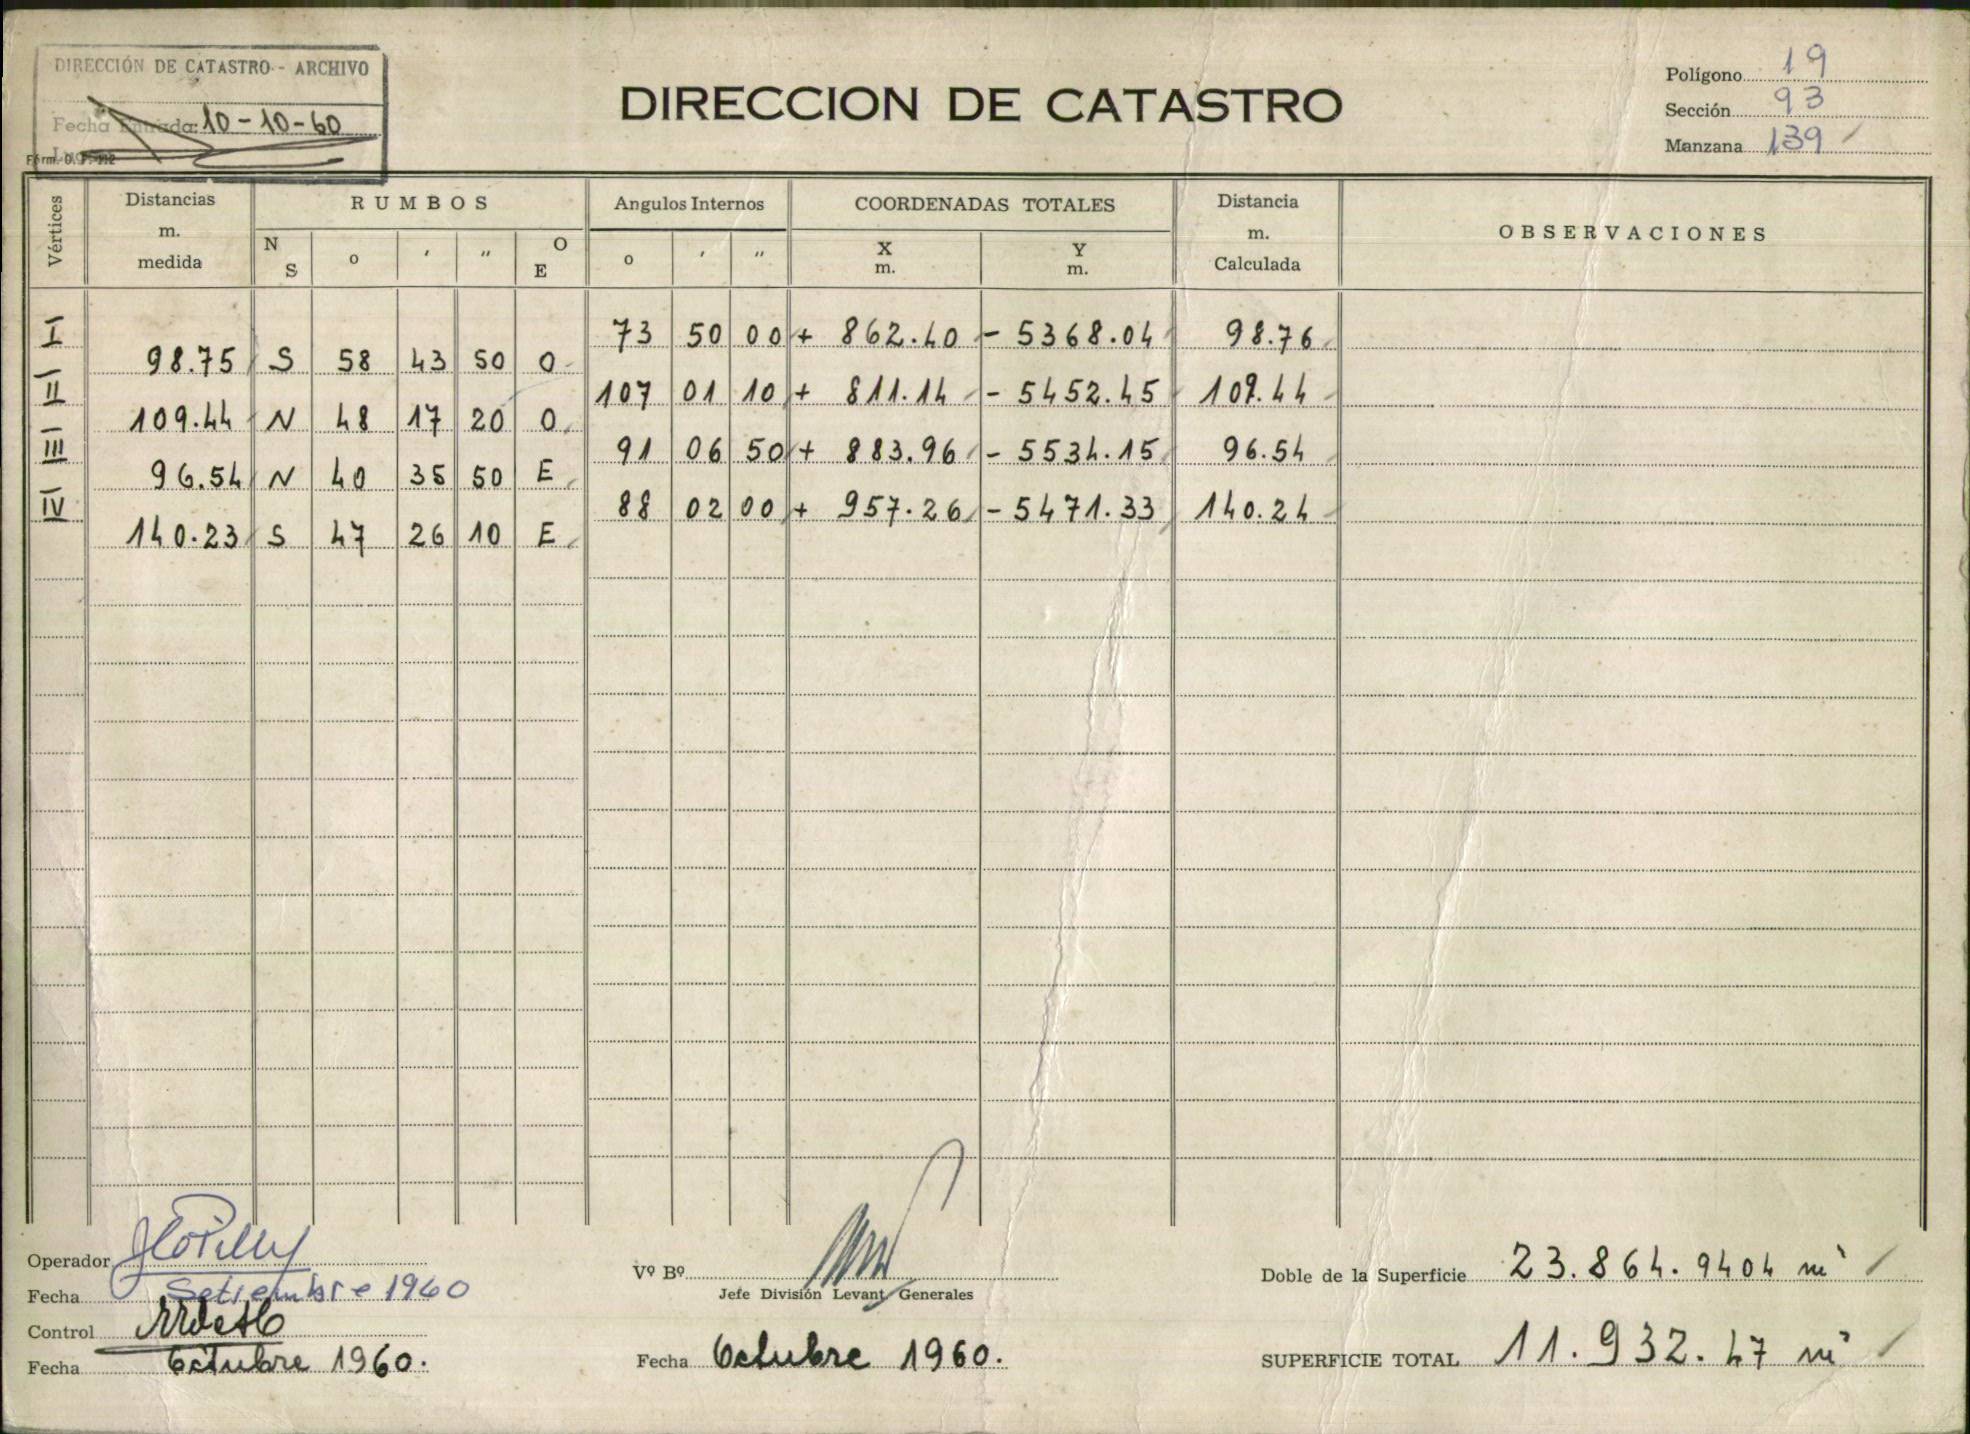 DIRECCIÓN DE CATASTRO - ARCHIVO
Fecha Entrada: 10-10-60
DIRECCION DE CATASTRO
Polígono 19
Sección 93
Manzana 139
Vértices
Distancias m. medida
RUMBOS
N S ° ′ ″ O E
Angulos Internos
° ′ ″
COORDENADAS TOTALES
X m. Y m.
Distancia m. Calculada
OBSERVACIONES
I 73 50 00 + 862.40 - 5368.04 98.76
98.75 S 58 43 50 O
II 107 01 10 + 811.14 - 5452.45 109.44
109.44 N 48 17 20 O
III 91 06 50 + 883.96 - 5534.15 96.54
96.54 N 40 35 50 E
IV 88 02 00 + 957.26 - 5471.33 140.24
140.23 S 47 26 10 E
Operador
Fecha Setiembre 1960
Control
Fecha Octubre 1960.
Vº Bº
Jefe División Levant Generales
Fecha Octubre 1960.
Doble de la Superficie 23.864.9404 m²
SUPERFICIE TOTAL 11.932.47 m²